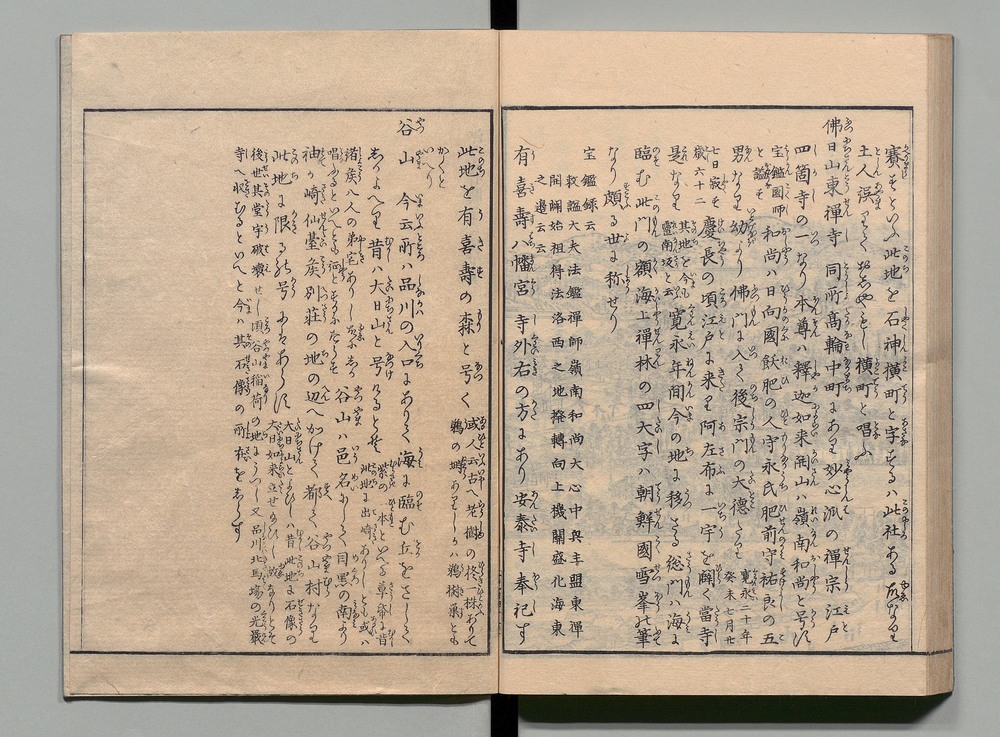 賽すといふ此地を石神横町と字するハ此社ある故なり
土人誤りておしやもじ横町と唱ふ
佛日山東禪寺 同所高輪中町にあり妙心派の禪宗江戸
四箇寺の一なり本尊ハ釋迦如来開山ハ嶺南和尚と号す
宝鑑國師と謚す 和尚ハ日向國飫肥の人守永氏肥前守祐良の五
男なり幼より佛門に入て後宗門の大德たり 寛永二十年癸未七月廿
七日寂す歳六十二 慶長の頃江戸に来り阿左布に一宇を闢く當寺
是なり 其地を今も霊南坂と云 寛永年間今の地に移さる総門ハ海に
臨む此門の額海上禪林の四大字ハ朝鮮國雪峯の筆
なり頗る世に称せり
宝鑑録云
敕謚大夫法鑑禪師嶺南和尚大心中興主盟東禪
開闢始祖得法洛西之地撥轉向上機關盛化海東
之邊云云
有喜壽八幡宮 寺外右の方にあり安泰寺奉祀す
此地を有喜壽の森と号く 或人云古へ老樹の柊一株ありて
鵜の
かくといへり
谷山 今云所ハ品川の入口にありて海に臨む丘をさして
しかよへり昔ハ大日山と号けるとぞ 紫の一本といへる草帋に昔
此地に出崎ありしとも或ハ
諸侯八人の第宅ありし
唱ふるといへとも
谷山ハ邑名にして目黒の南より
神が崎仙臺矦別荘の地の辺へかけて都て谷山村なり
此地に限る号にあらす 大日山とよひしハ昔此地に石像の
大日如来立せ給ひし故なりとそ
後世其堂宇破壊せし頃谷山稲荷の地にうつし又品川北馬場の光嚴
寺へ収むるといへと今ハ其石像の所在をしらす